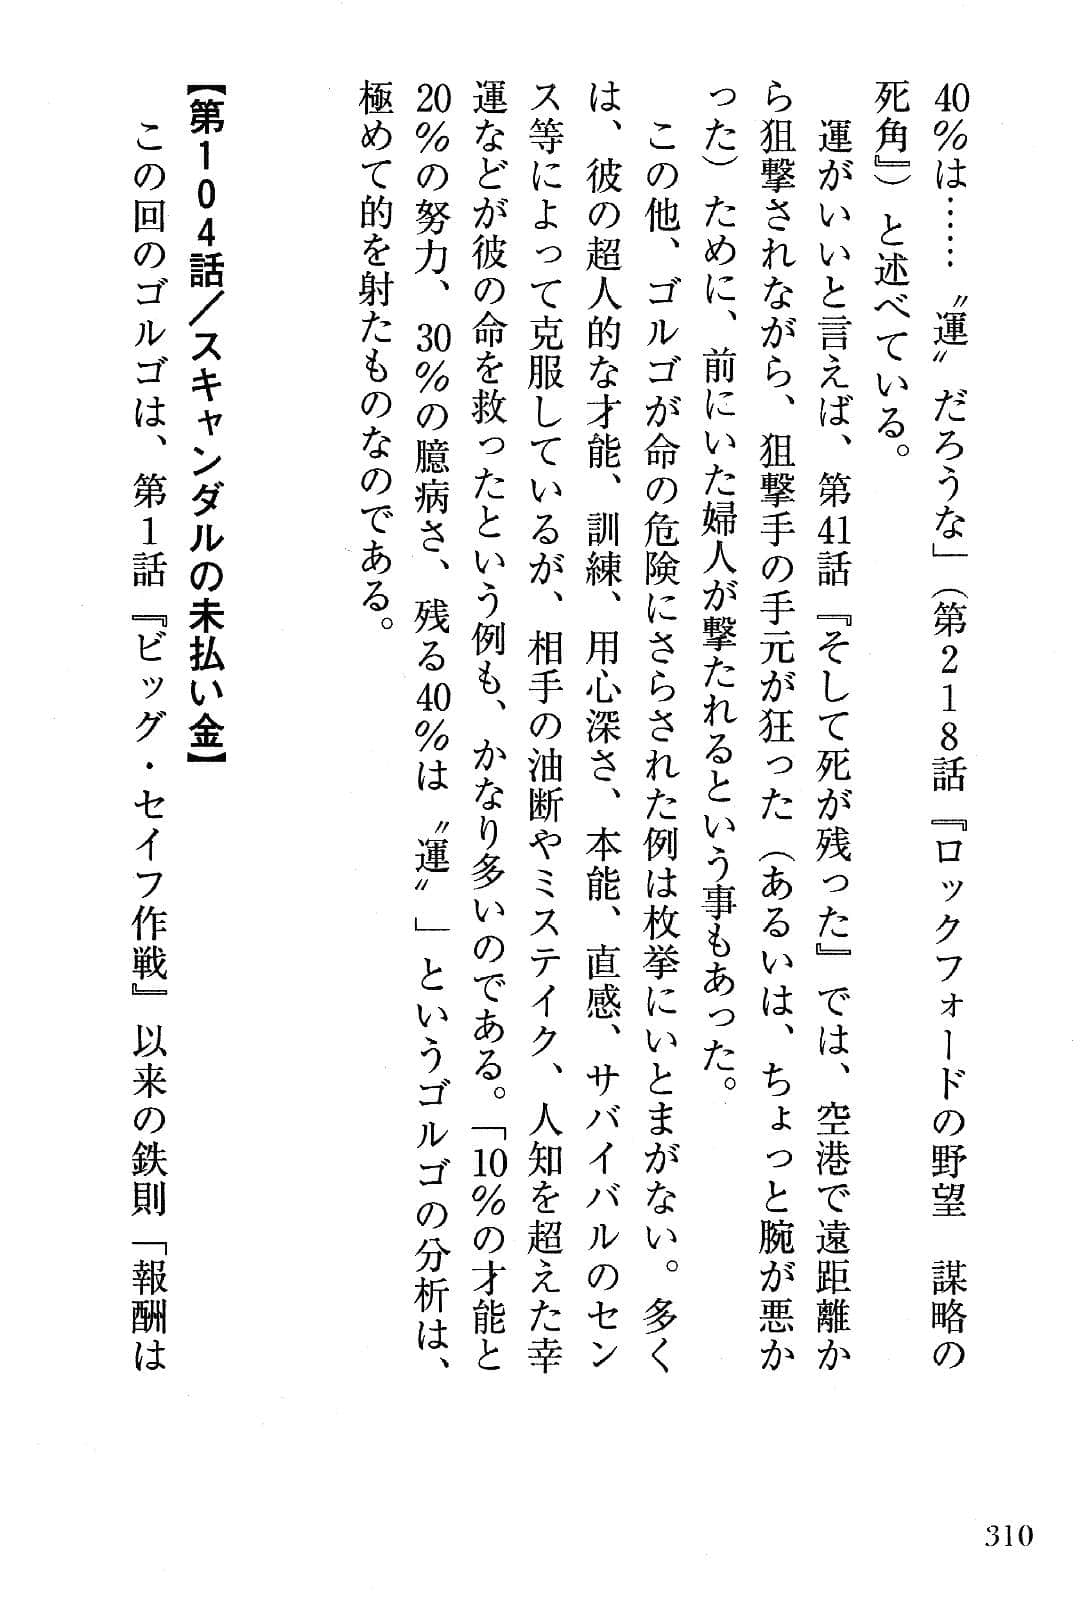 40%は……〝運〟だろうな」（第218話『ロックフォードの野望　謀略の
死角』）と述べている。
　運がいいと言えば、第41話『そして死が残った』では、空港で遠距離か
ら狙撃されながら、狙撃手の手元が狂った（あるいは、ちょっと腕が悪か
った）ために、前にいた婦人が撃たれるという事もあった。
　この他、ゴルゴが命の危険にさらされた例は枚挙にいとまがない。多く
は、彼の超人的な才能、訓練、用心深さ、本能、直感、サバイバルのセン
ス等によって克服しているが、相手の油断やミステイク、人知を超えた幸
運などが彼の命を救ったという例も、かなり多いのである。「10%の才能と
20%の努力、30%の臆病さ、残る40%は〝運〟」というゴルゴの分析は、
極めて的を射たものなのである。
【第104話／スキャンダルの未払い金】
　この回のゴルゴは、第1話『ビッグ・セイフ作戦』以来の鉄則「報酬は
310